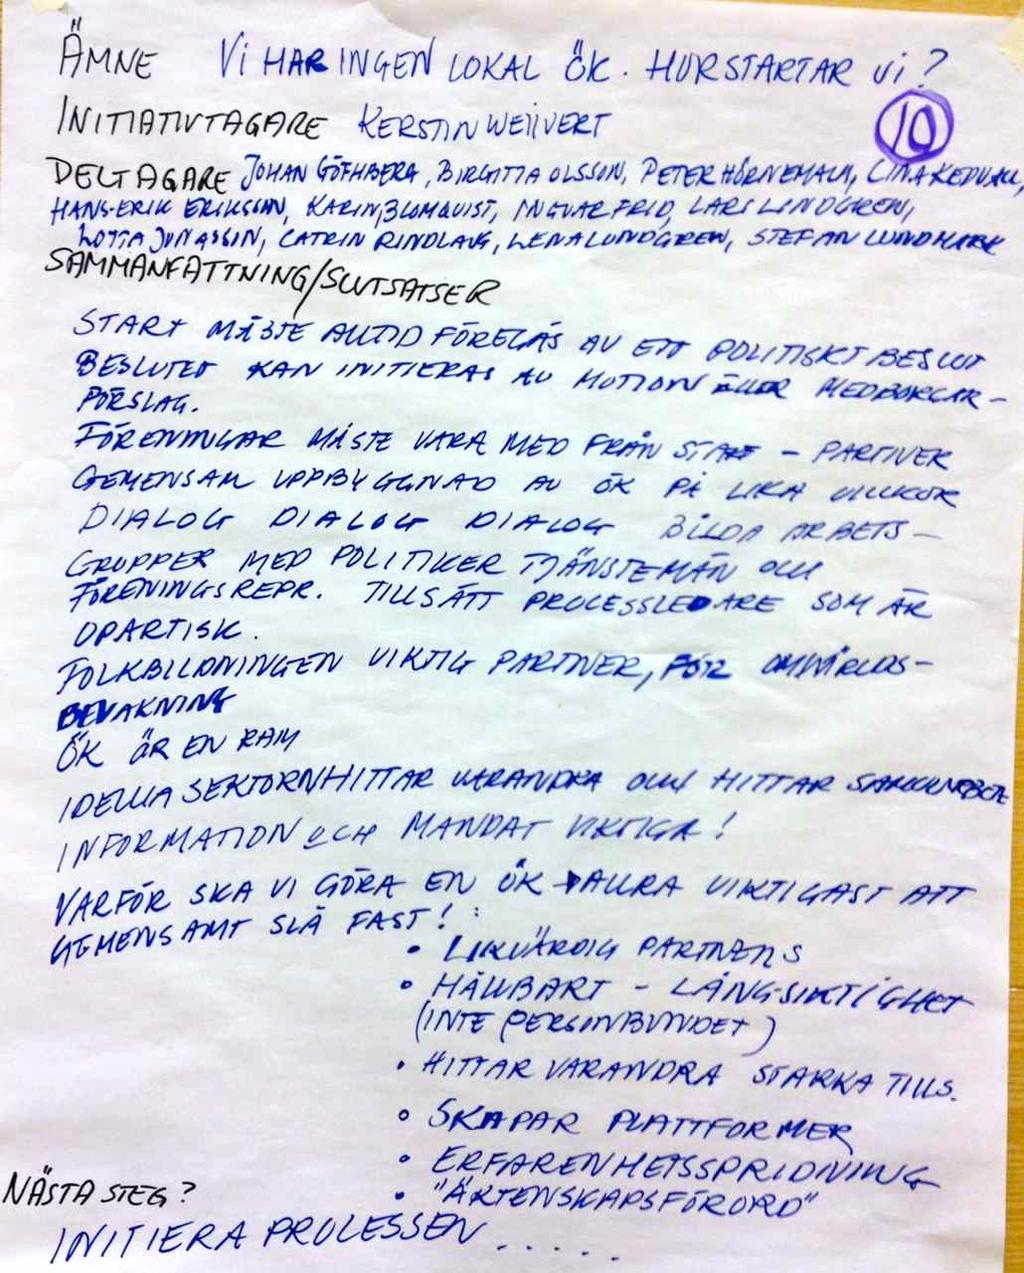 ÄMNE VI HAR INGEN LOKAL ÖK. HUR STARTAR VI?
INITIATIVTAGARE KERSTIN WEIIVERT
10
DELTAGARE JOHAN GÖTHBERG, BIRGITTA OLSSON, PETER HÖRNEMALM, LINA KEDVALL,
HANS-ERIK ERIKSSON, KARIN BLOMQUIST, INGVAR FRID, LARS LINDGREN,
LOTTA JONASSON, CATRIN RINDLAUG, LENA LUNDGREN, STEFAN LUNDMARK
SAMMANFATTNING/SLUTSATSER
START MÅSTE ALLTID FÖREGÅS AV ETT POLITISKT BESLUT
BESLUTET KAN INITIERAS AV MOTION ELLER MEDBORGAR-
FÖRSLAG.
FÖRENINGAR MÅSTE VARA MED FRÅN START - PARTNER
GEMENSAM UPPBYGGNAD AV ÖK PÅ LIKA VILLKOR
DIALOG DIALOG DIALOG BILDA ARBETS-
GRUPPER MED POLITIKER TJÄNSTEMÄN OCH
FÖRENINGSREPR. TILLSÄTT PROCESSLEDARE SOM ÄR
OPARTISK.
FOLKBILDNINGEN VIKTIG PARTNER, FÖR OMVÄRLDS-
BEVAKNING
ÖK ÄR EN RAM
IDELLA SEKTORN HITTAR VARANDRA OCH HITTAR SAMARBETE
INFORMATION OCH MANDAT VIKTIGA!
VARFÖR SKA VI GÖRA EN ÖK ALLRA VIKTIGAST ATT
GEMENSAMT SLÅ FAST! :
• LIKVÄRDIG PARTNERS
• HÅLLBART - LÅNGSIKTIGHET
(INTE PERSONBUNDET)
• HITTAR VARANDRA STARKA TILLS.
• SKAPAR PLATTFORMER
• ERFARENHETSSPRIDNING
• "ÄKTENSKAPSFÖRORD"
NÄSTA STEG?
INITIERA PROCESSEN .....